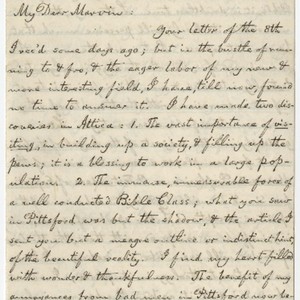 My Dear Marvin:
Your letter of the 8th
I rec'd some days ago; but in the bustle of runn
ing to & fro, & the eager labor of my new &
more interesting field, I have, till now, found
no time to answer it. I have made two dis-
coveries in Attica: 1. The vast importance of vis-
iting, in building up a society, & filling up the
pews; it is a blessing to work in a large pop-
ulation. 2. The immense, immeasurable force of
a well conducted Bible Class; what you saw
in Pittsford was but the shadow, & the article I
sent you but a meagre outline or indistinct hint,
of the beautiful reality. I find my heart filled
with wonder & thankfulness. The benefit of my
annoyances from bad men in Pittsford now be